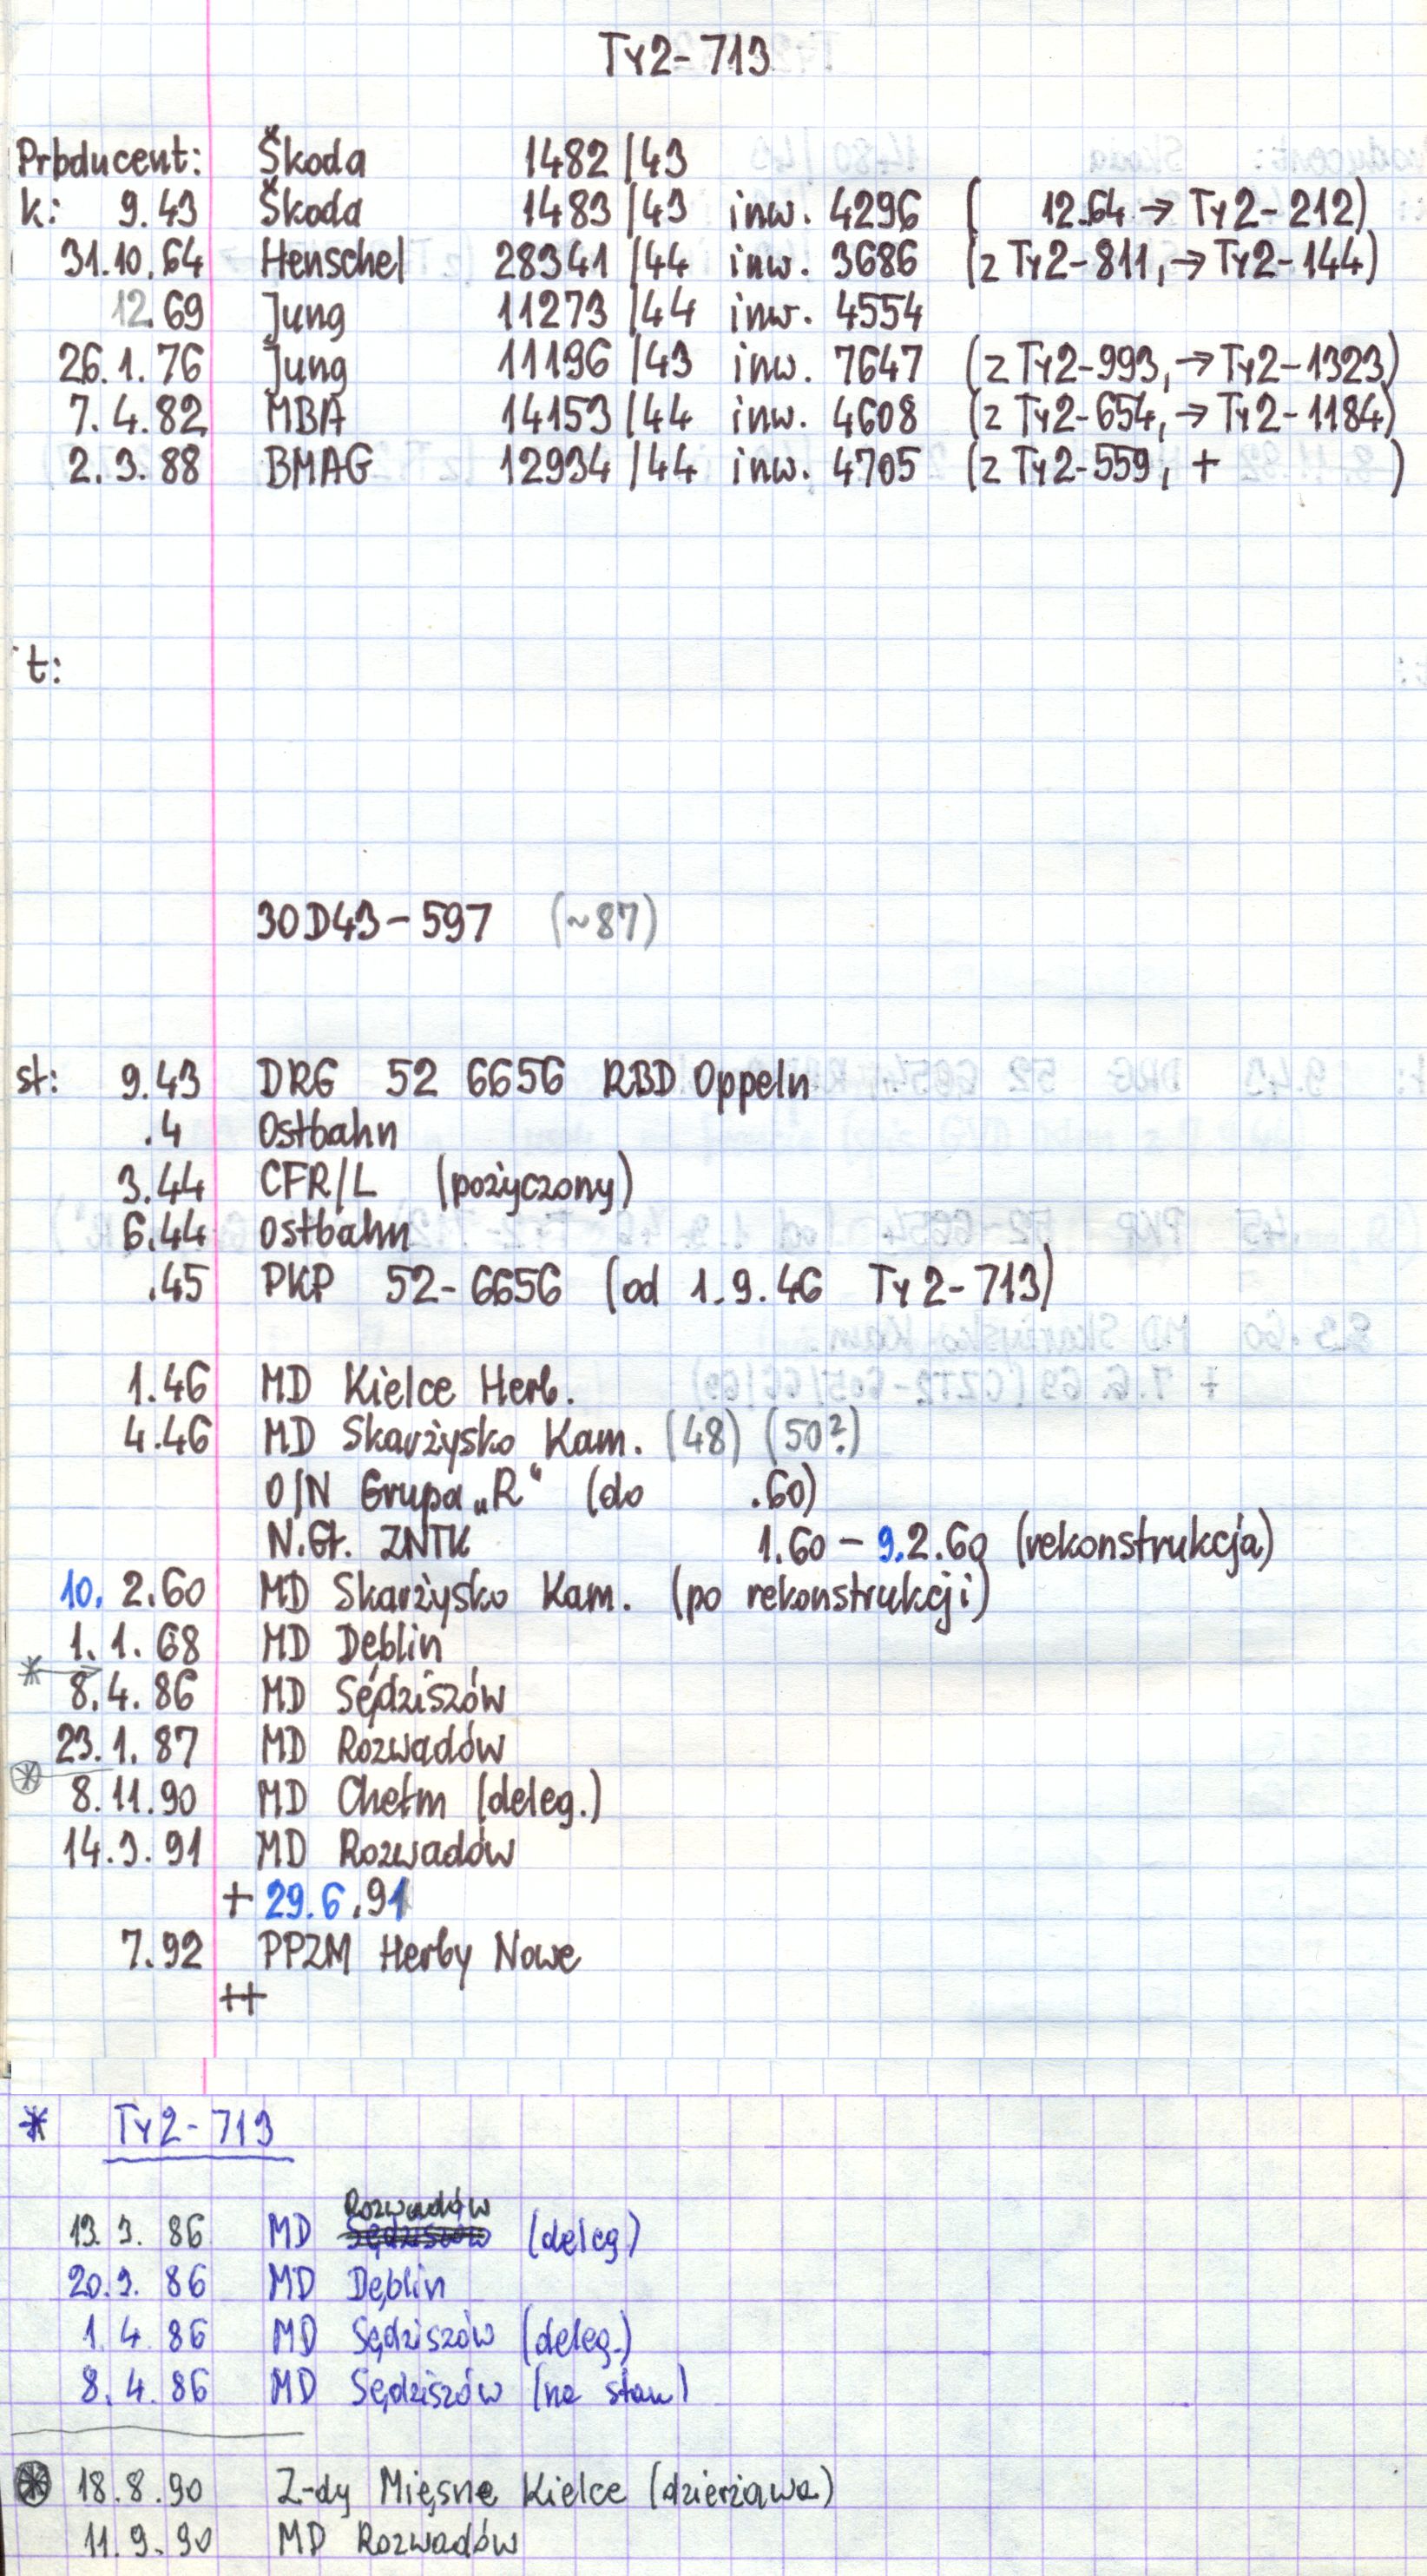 Ty2-713
Prbducent: Škoda 1482/43
k: 9.43 Škoda 1483/43 inw. 4296 ( 12.64 → Ty2-212)
31.10.64 Henschel 28341/44 inw. 3686 (z Ty2-811, → Ty2-144)
12.69 Jung 11273/44 inw. 4554
26.1.76 Jung 11196/43 inw. 7647 (z Ty2-993, → Ty2-1323)
7.4.82 MBA 14153/44 inw. 4608 (z Ty2-654, → Ty2-1184)
2.3.88 BMAG 12934/44 inw. 4705 (z Ty2-559, + )
t:
30D43-597 (~87)
st: 9.43 DRG 52 6656 RBD Oppeln
.4 Ostbahn
3.44 CFR/L (pożyczony)
6.44 Ostbahn
.45 PKP 52-6656 (od 1.9.46 Ty2-713)
1.46 MD Kielce Herb.
4.46 MD Skarżysko Kam. (48) (50?)
O/N Grupa „R" (do .60)
N.Gt. ZNTK 1.60 – 9.2.60 (rekonstrukcja)
10. 2.60 MD Skarżysko Kam. (po rekonstrukcji)
1.1.68 MD Dęblin
* →
8.4.86 MD Sędziszów
23.1.87 MD Rozwadów
⊛
8.11.90 MD Chełm (deleg.)
14.3.91 MD Rozwadów
+ 29.6.91
7.92 PPZM Herby Nowe
++
* Ty2-713
13.3.86 MD Rozwadów Sędziszów (deleg)
20.3.86 MD Dęblin
1.4.86 MD Sędziszów (deleg.)
8.4.86 MD Sędziszów (na stan)
⊛ 18.8.90 Z-dy Mięsne Kielce (dzierżawa)
11.9.90 MD Rozwadów